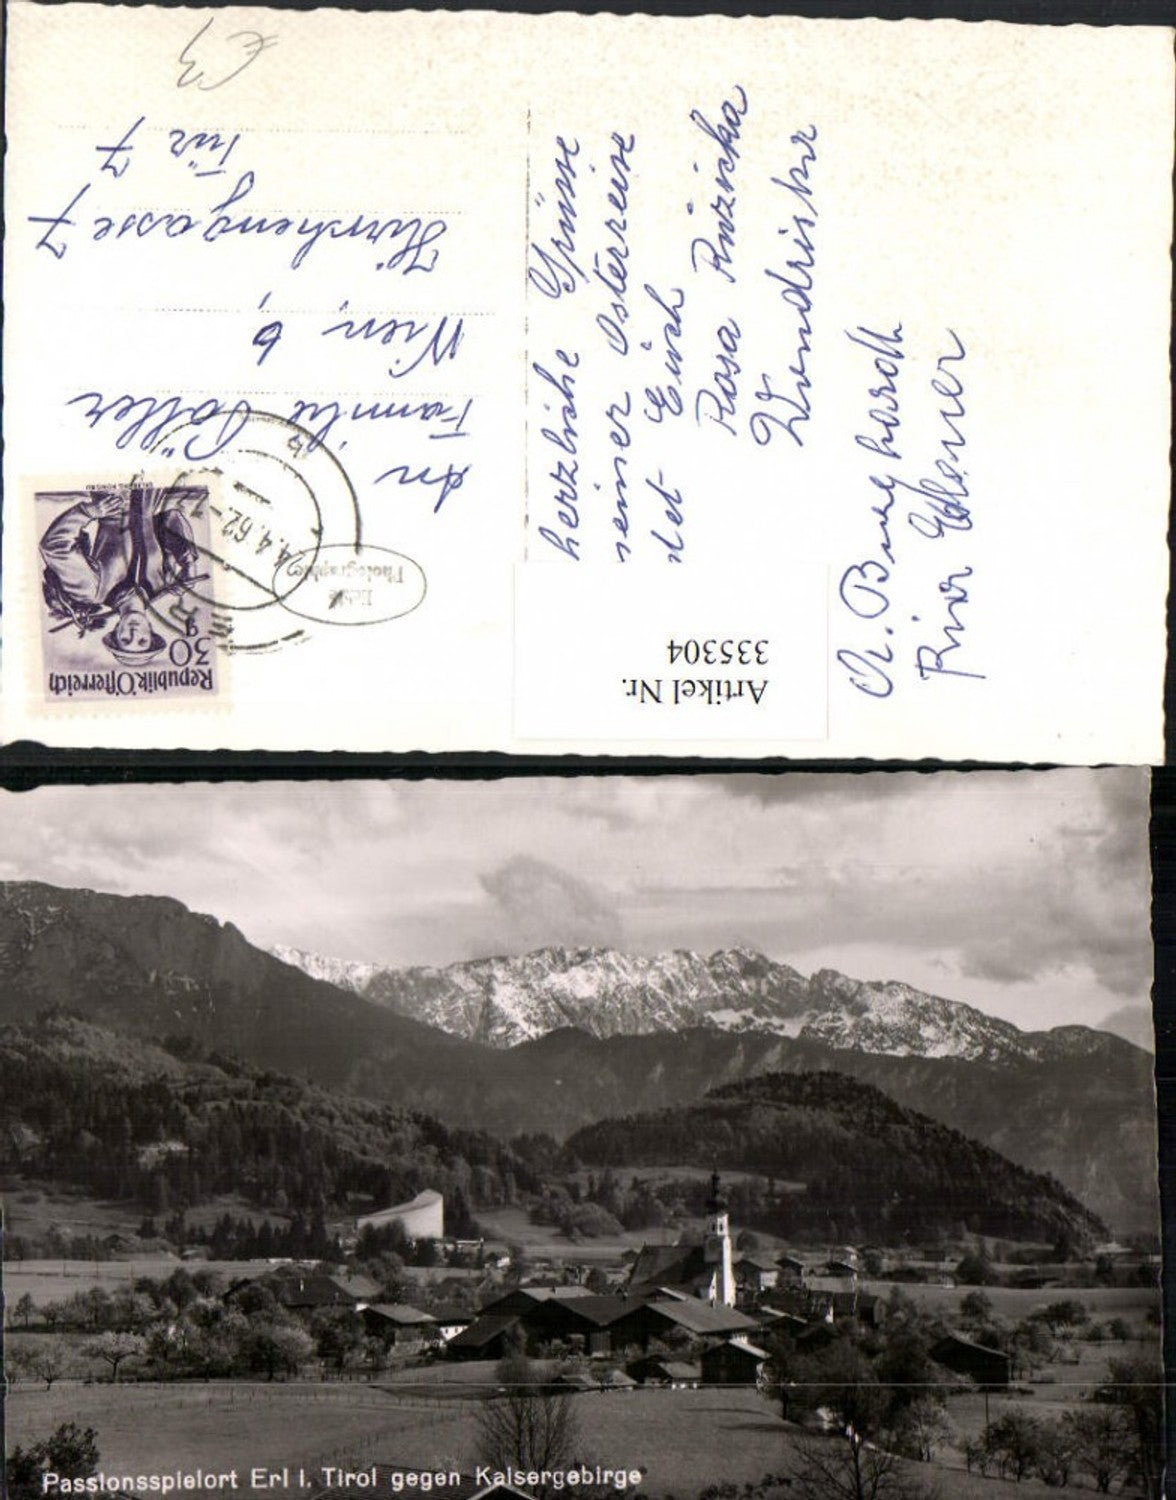 €3
An
Familie Söller
Wien, 6,
Hirschengasse 7
Tür 7
herzliche Grüsse
seiner Osterreise
det Euch
Rosa Ruzicka
Republik Österreich
30
g
4.4.62
Echte
Photographie
Artikel Nr.
335304
Passionsspielort Erl i. Tirol gegen Kaisergebirge